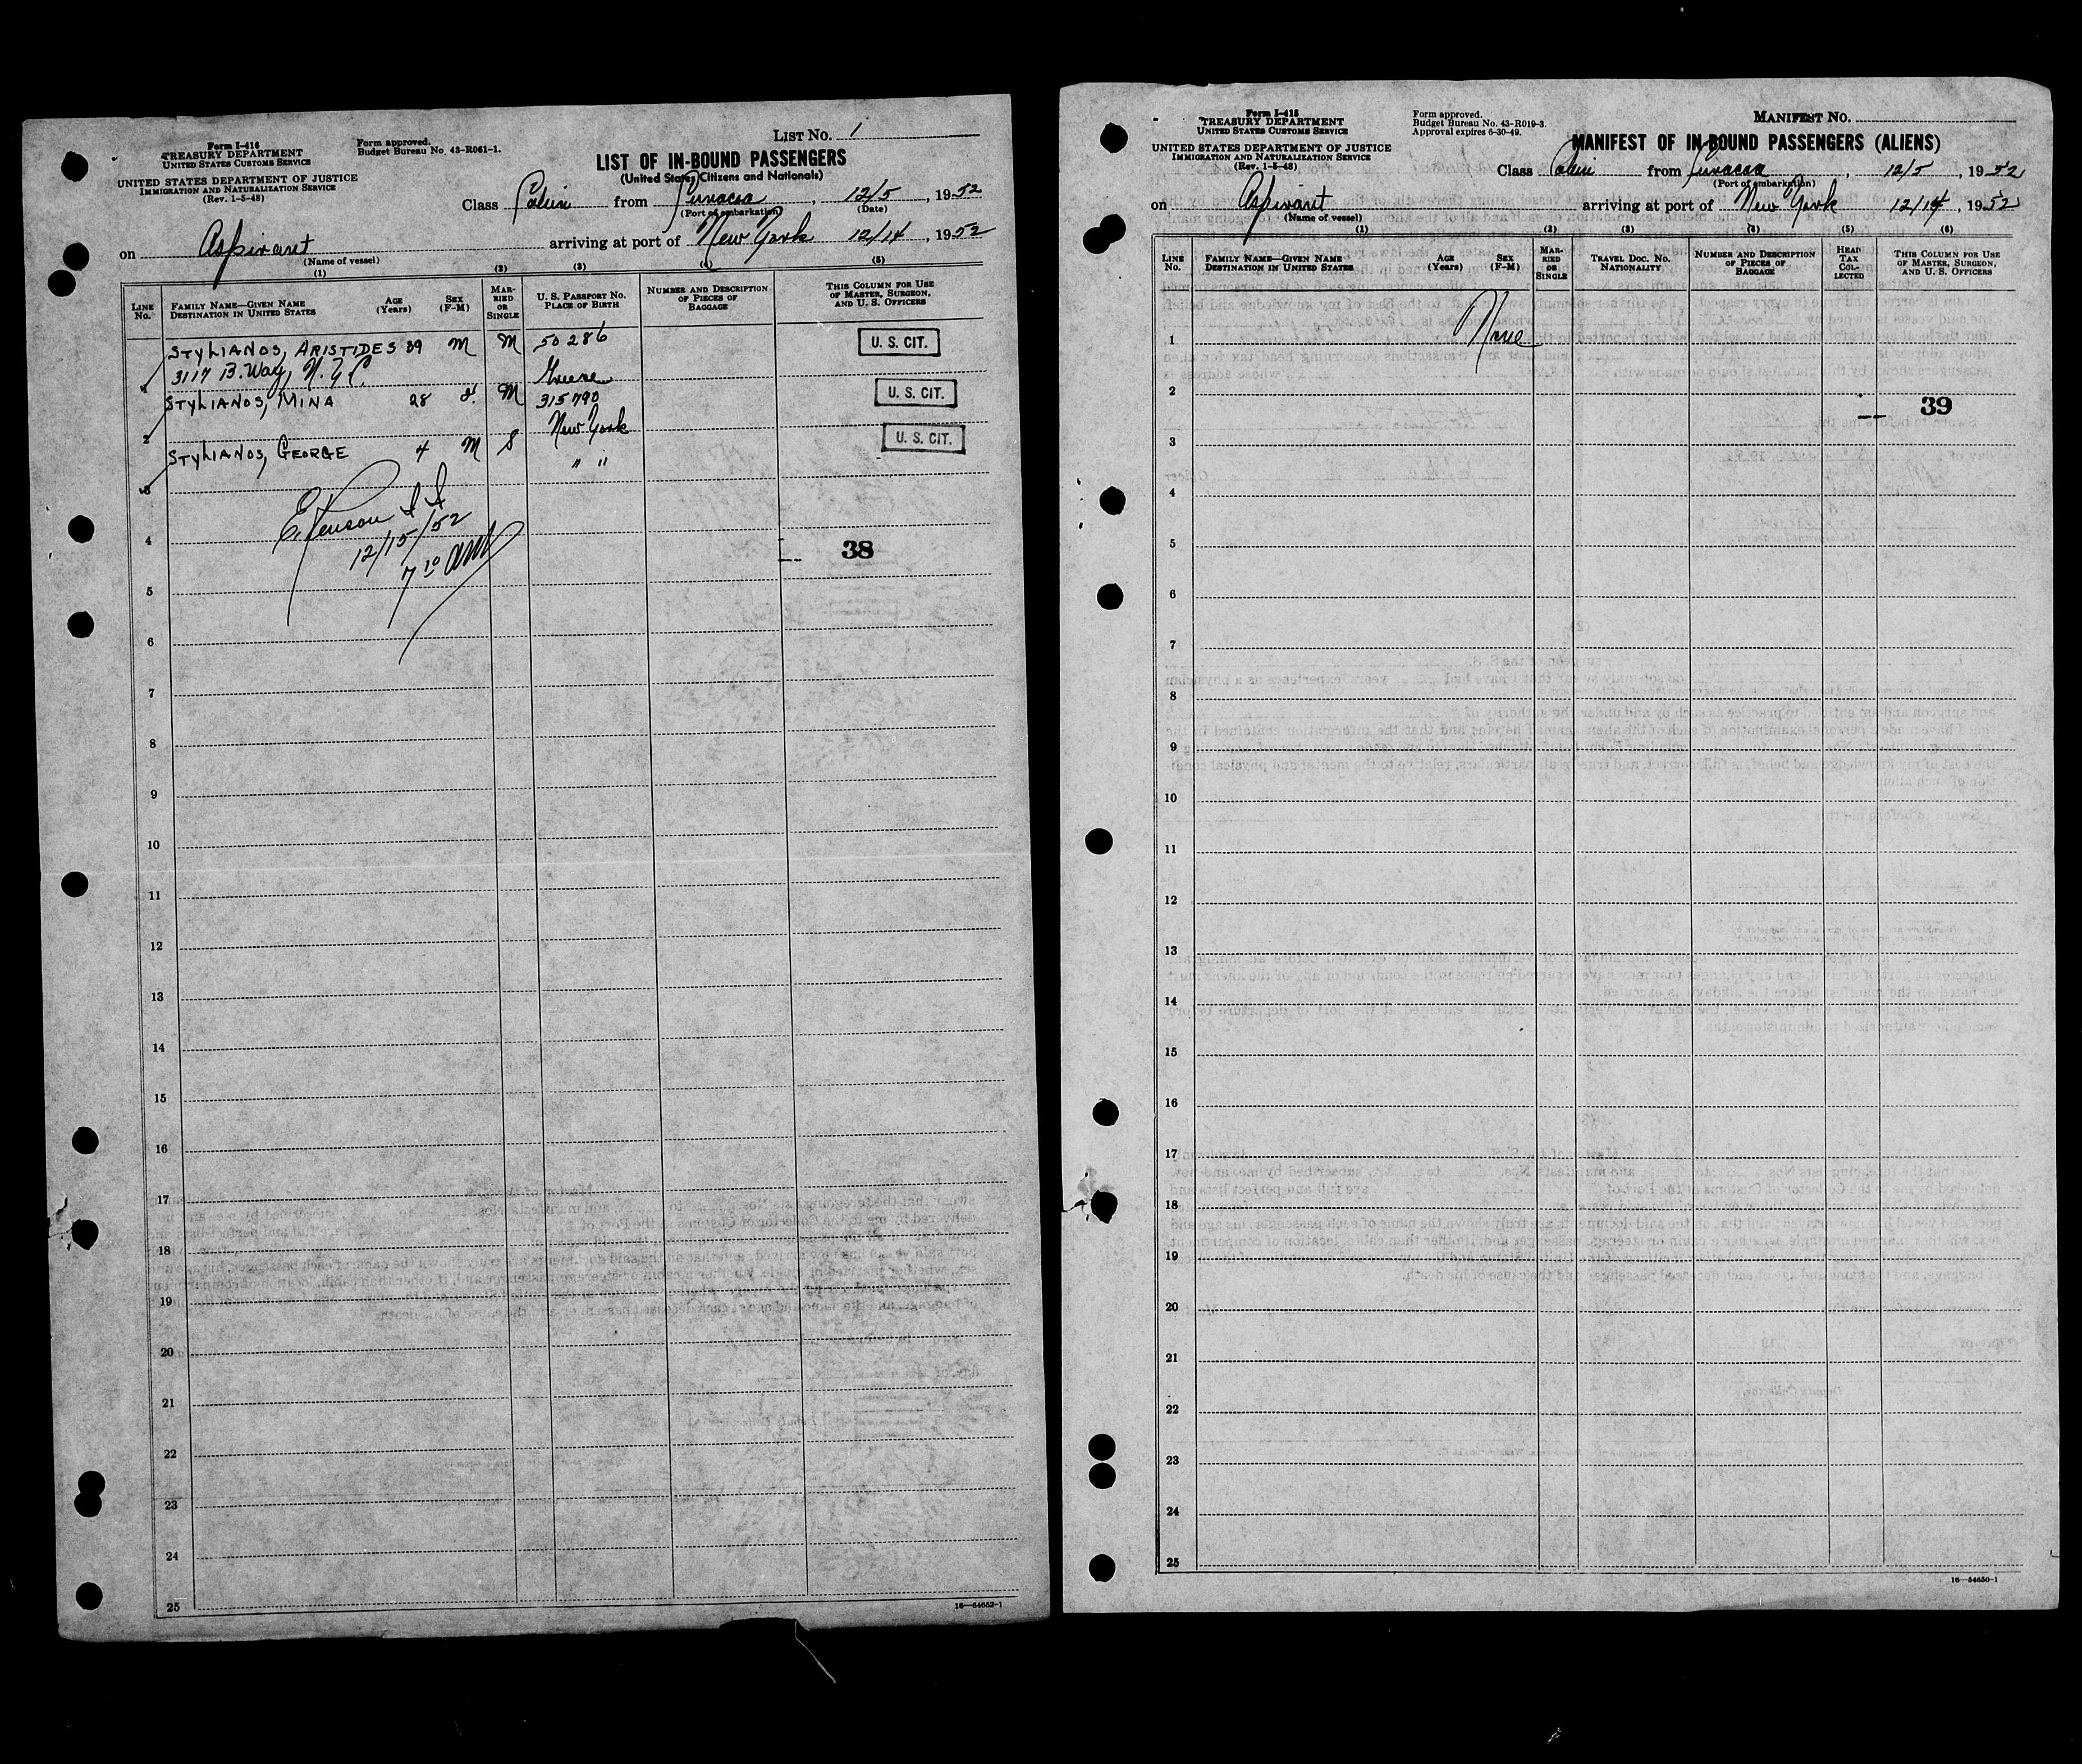 Form I-416
TREASURY DEPARTMENT
UNITED STATES CUSTOMS SERVICE
UNITED STATES DEPARTMENT OF JUSTICE
IMMIGRATION AND NATURALIZATION SERVICE
(Rev. 1-5-48)
Form approved.
Budget Bureau No. 43-R061-1.
LIST No. 1
LIST OF IN-BOUND PASSENGERS
(United States Citizens and Nationals)
Class Cabin from Curacoa, 12/5, 1952
(Port of embarkation) (Date)
on Aspirant arriving at port of New York 12/14, 1952
(Name of vessel)
(1) (2) (3) (4) (5)
LINE No.
FAMILY NAME—GIVEN NAME
DESTINATION IN UNITED STATES
AGE (Years)
SEX (F-M)
MARRIED OR SINGLE
U. S. PASSPORT NO.
PLACE OF BIRTH
NUMBER AND DESCRIPTION OF PIECES OF BAGGAGE
THIS COLUMN FOR USE OF MASTER, SURGEON, AND U. S. OFFICERS
STYLIANOS, ARISTIDES 39 M M 50286 U. S. CIT.
1 3117 B.Way, N.Y.C. Greece
STYLIANOS, MINA 28 F. M 315790 U. S. CIT.
2 New York
STYLIANOS, GEORGE 4 M S " " U. S. CIT.
3
12/15/52
4 38
7 10 AM
5
6
7
8
9
10
11
12
13
14
15
16
17
18
19
20
21
22
23
24
25
16—54652-1
Form I-415
TREASURY DEPARTMENT
UNITED STATES CUSTOMS SERVICE
UNITED STATES DEPARTMENT OF JUSTICE
IMMIGRATION AND NATURALIZATION SERVICE
(Rev. 1-5-48)
Form approved.
Budget Bureau No. 43-R019-3.
Approval expires 6-30-49.
MANIFEST No.
MANIFEST OF IN-BOUND PASSENGERS (ALIENS)
Class Cabin from Curacoa, 12/5, 1952
(Port of embarkation)
on Aspirant arriving at port of New York 12/14, 1952
(Name of vessel)
(1) (2) (3) (3) (5) (6)
LINE No.
FAMILY NAME—GIVEN NAME
DESTINATION IN UNITED STATES
AGE (Years)
SEX (F-M)
MARRIED OR SINGLE
TRAVEL DOC. NO.
NATIONALITY
NUMBER AND DESCRIPTION OF PIECES OF BAGGAGE
HEAD TAX COLLECTED
THIS COLUMN FOR USE OF MASTER, SURGEON, AND U. S. OFFICERS
1 None
2
39
3
4
5
6
7
8
9
10
11
12
13
14
15
16
17
18
19
20
21
22
23
24
25
16—54650-1